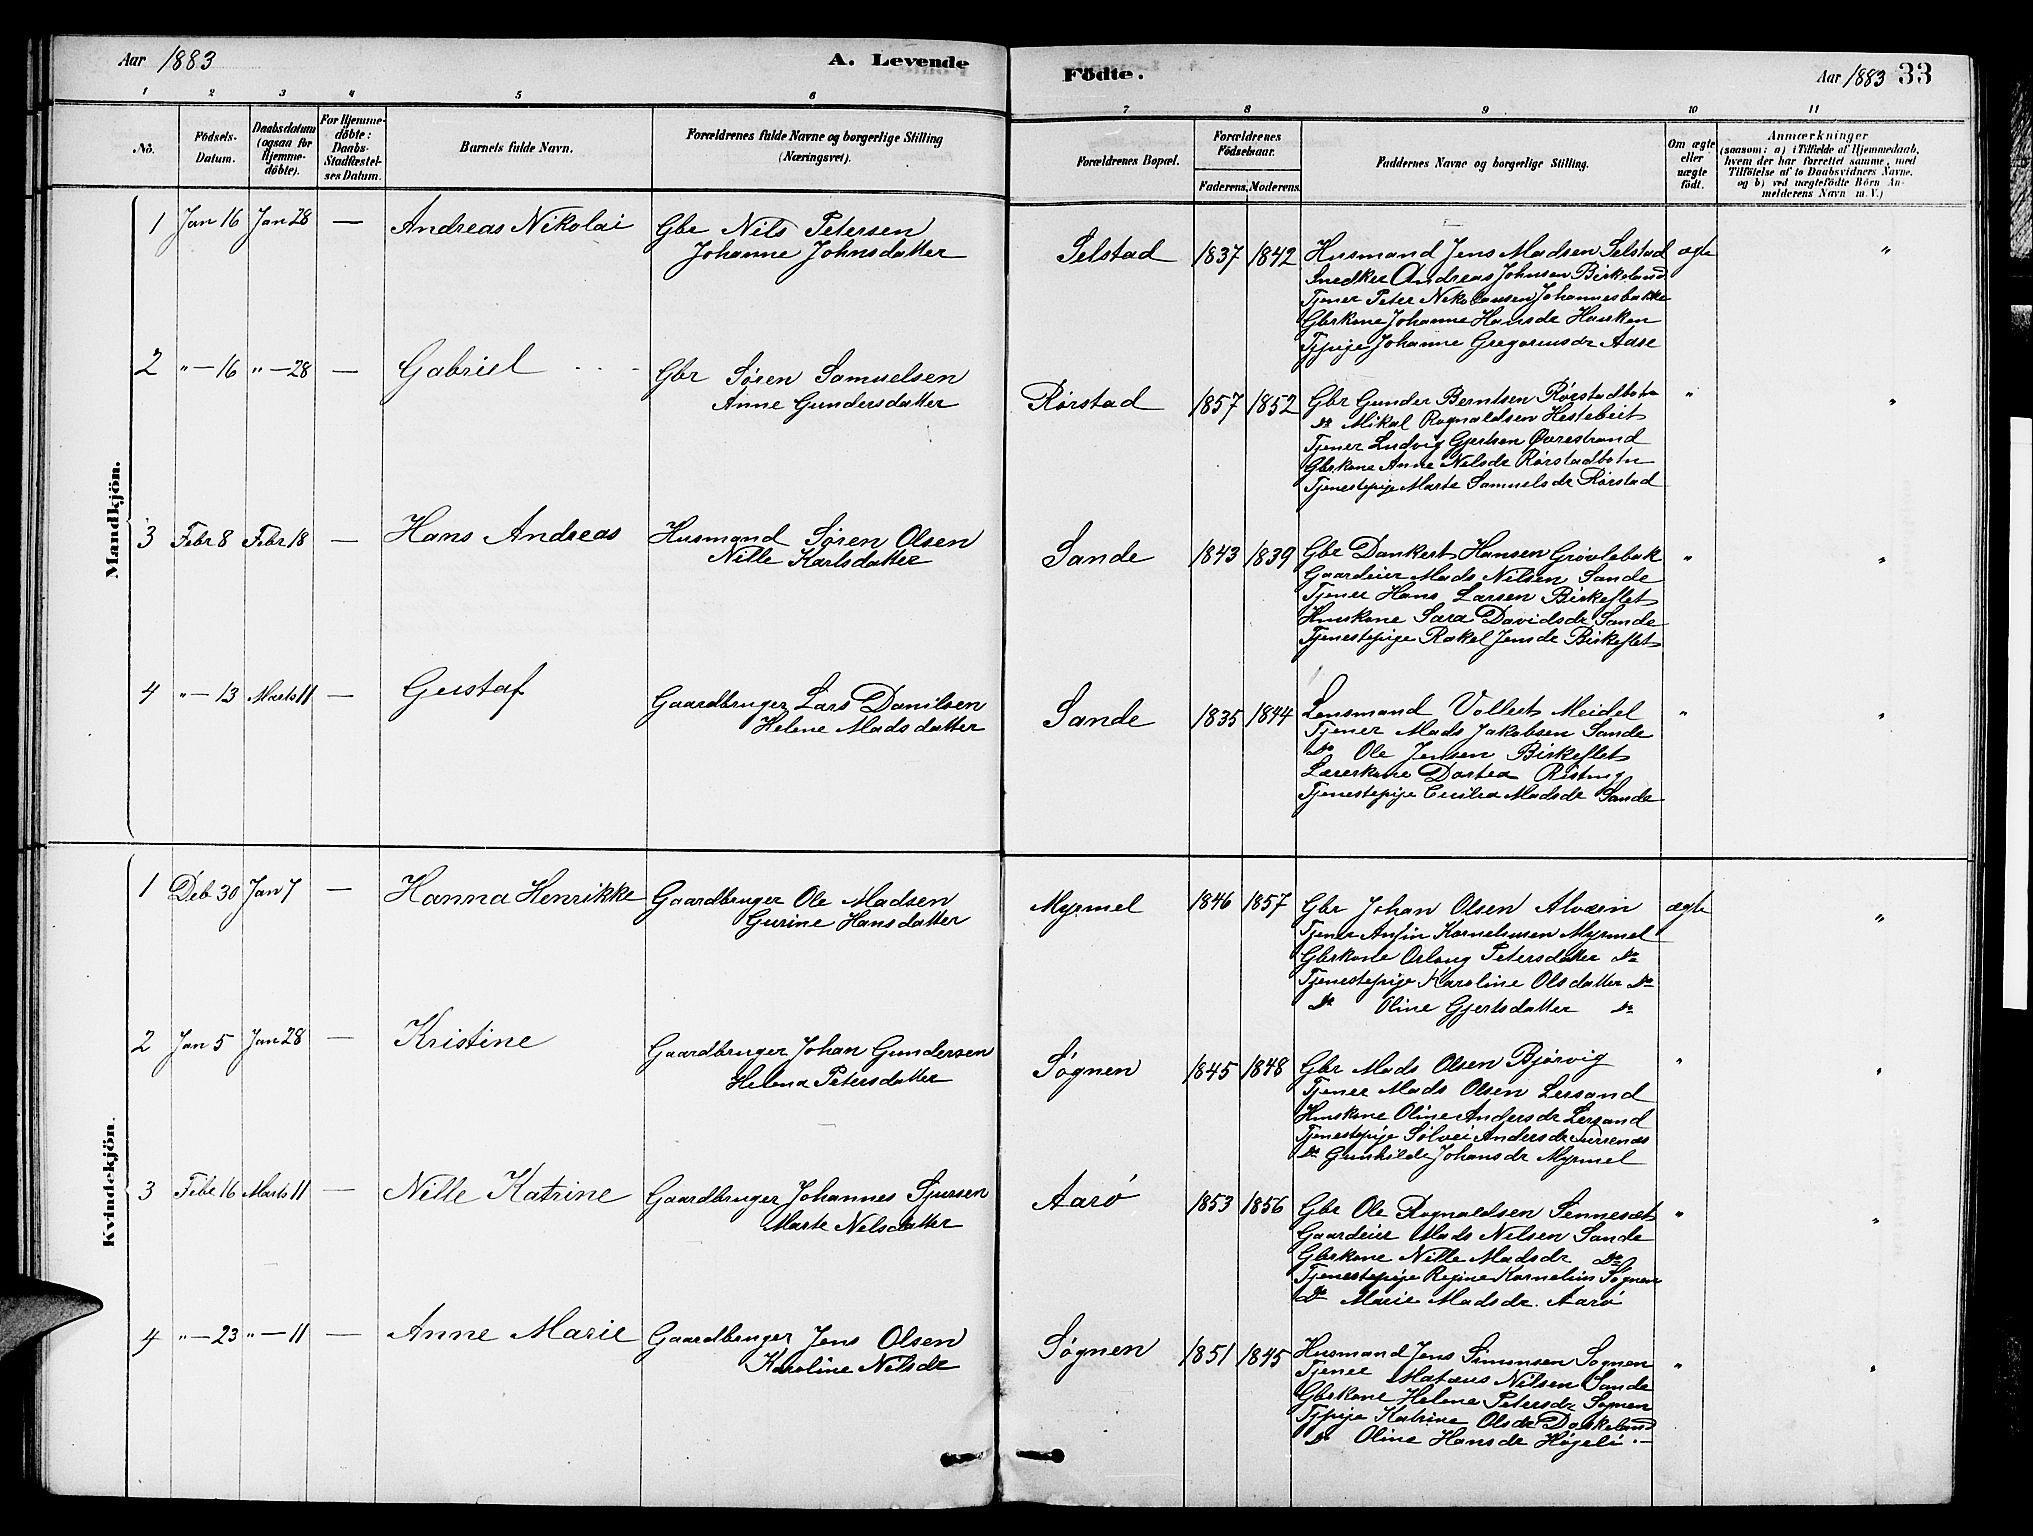 Aar 1883
A. Levende
Födte.
Aar 1883 33
1 2 3 4 5 6 7 8 9 10 11
Nô.
Födsels-Datum.
Daabsdatum (ogsaa for Hjemmedöbte).
For Hjemmedöbte: Daabs-Stadfæstelses Datum.
Barnets fulde Navn.
Forældrenes fulde Navne og borgerlige Stilling (Næringsvei).
Forældrenes Bopæl.
Forældrenes Födselsaar.
Faderens. Moderens.
Faddernes Navne og borgerlige Stilling.
Om ægte eller uægte födt.
Anmærkninger
(saasom: a) i Tilfælde af Hjemmedaab,
hvem der har forrettet samme, med
Tilföielse af to Daabsvidners Navne.
og b) ved uægtefödte Börn An-
melderens Navn m. V.)
Mandkjön.
1 Jan 16 Jan 28 — Andreas Nikolai Gbr Nils Petersen
Johanne Johnsdatter
Selstad 1837 1842 Husmand Jens Madsen Selstad ægte "
Snedker Andreas Johnsen Birkeland
Tjener Peter Nikolausen Johannesbakke
Gbrkone Johanne Hansdr Hausken
Tjpige Johanne Gregoriusdr Aase
2 " — 16 " — 28 — Gabriel Gbr Sören Samuelsen
Anne Gundersdatter
Rörstad 1857 1852 Gbr Gunder Berntsen Rörstadbotn " "
Do Mikal Rognaldsen Hestebeit
Tjener Ludvig Gjertsen Övrestrand
Gbrkone Anne Nelsdr Rörstadbotn
Tjenestepige Marte Samuelsdr Rörstad
3 Febr 8 Febr 18 — Hans Andreas Husmand Sören Olsen
Nille Karlsdatter
Sande 1843 1839 Gbr Dankert Hansen Grövlebak " "
Gaardeier Mads Nilsen Sande
Tjener Hans Larsen Birkeflet
Huskone Sara Davidsdr Sande
Tjenestepige Rakel Jensdr Birkeflet
4 " — 13 Marts 11 — Gustaf Gaardbruger Lars Danilsen
Helene Madsdatter
Sande 1835 1844 Lensmand Vollert Meidel " "
Tjener Mads Jakobsen Sande
Do Ole Jensen Birkeflet
Lærerkone Dortea
Tjenestepige Cecilia Madsdr Sande
Kvindekjön.
1 Deb 30 Jan 7 — Hanna Henrikke Gaardbruger Ole Madsen
Gurine Hansdatter
Myrmel 1846 1857 Gbr Johan Olsen Alværn ægte "
Tjener Anfin Korneliusen Myrmel
Gbrkone Orlaug Petersdatter Do
Tjenestepige Karoline Olsdatter Do
Do Oline Gjertsdatter Do
2 Jan 5 Jan 28 — Kristine Gaardbruger Johan Gundersen
Helena Petersdatter
Sögnen 1845 1848 Gbr Mads Olsen Bjørvig " "
Tjener Mads Olsen Lersand
Huskone Oline Andersdr Lersand
Tjenestepige Sölvei Andersdr
Do Gunhilde Johansdr Myrmel
3 Febr 16 Marts 11 — Nille Katrine Gaardbruger Johannes Sjursen
Marte Nelsdatter
Aarö 1853 1856 Gbr Ole Rognaldsen Sennesæt " "
Gaardeier Mads Nelsen Sande
Gbrkone Nille Madsdr Do
Tjenestepige Regine Kornelius Sögnen
Do Marie Madsdr. Aarö
4 " — 23 " — 11 — Anne Marie Gaardbruger Jens Olsen
Karoline Nelsdr
Sögnen 1851 1845 Husmand Jens Simonsen Sognen " "
Tjener Matæus Nilsen Sande
Gbrkone Helene Petersdr Sognen
Tjpige Katrine Olsdr Daskeland
Do Oline Hansdr Högeli